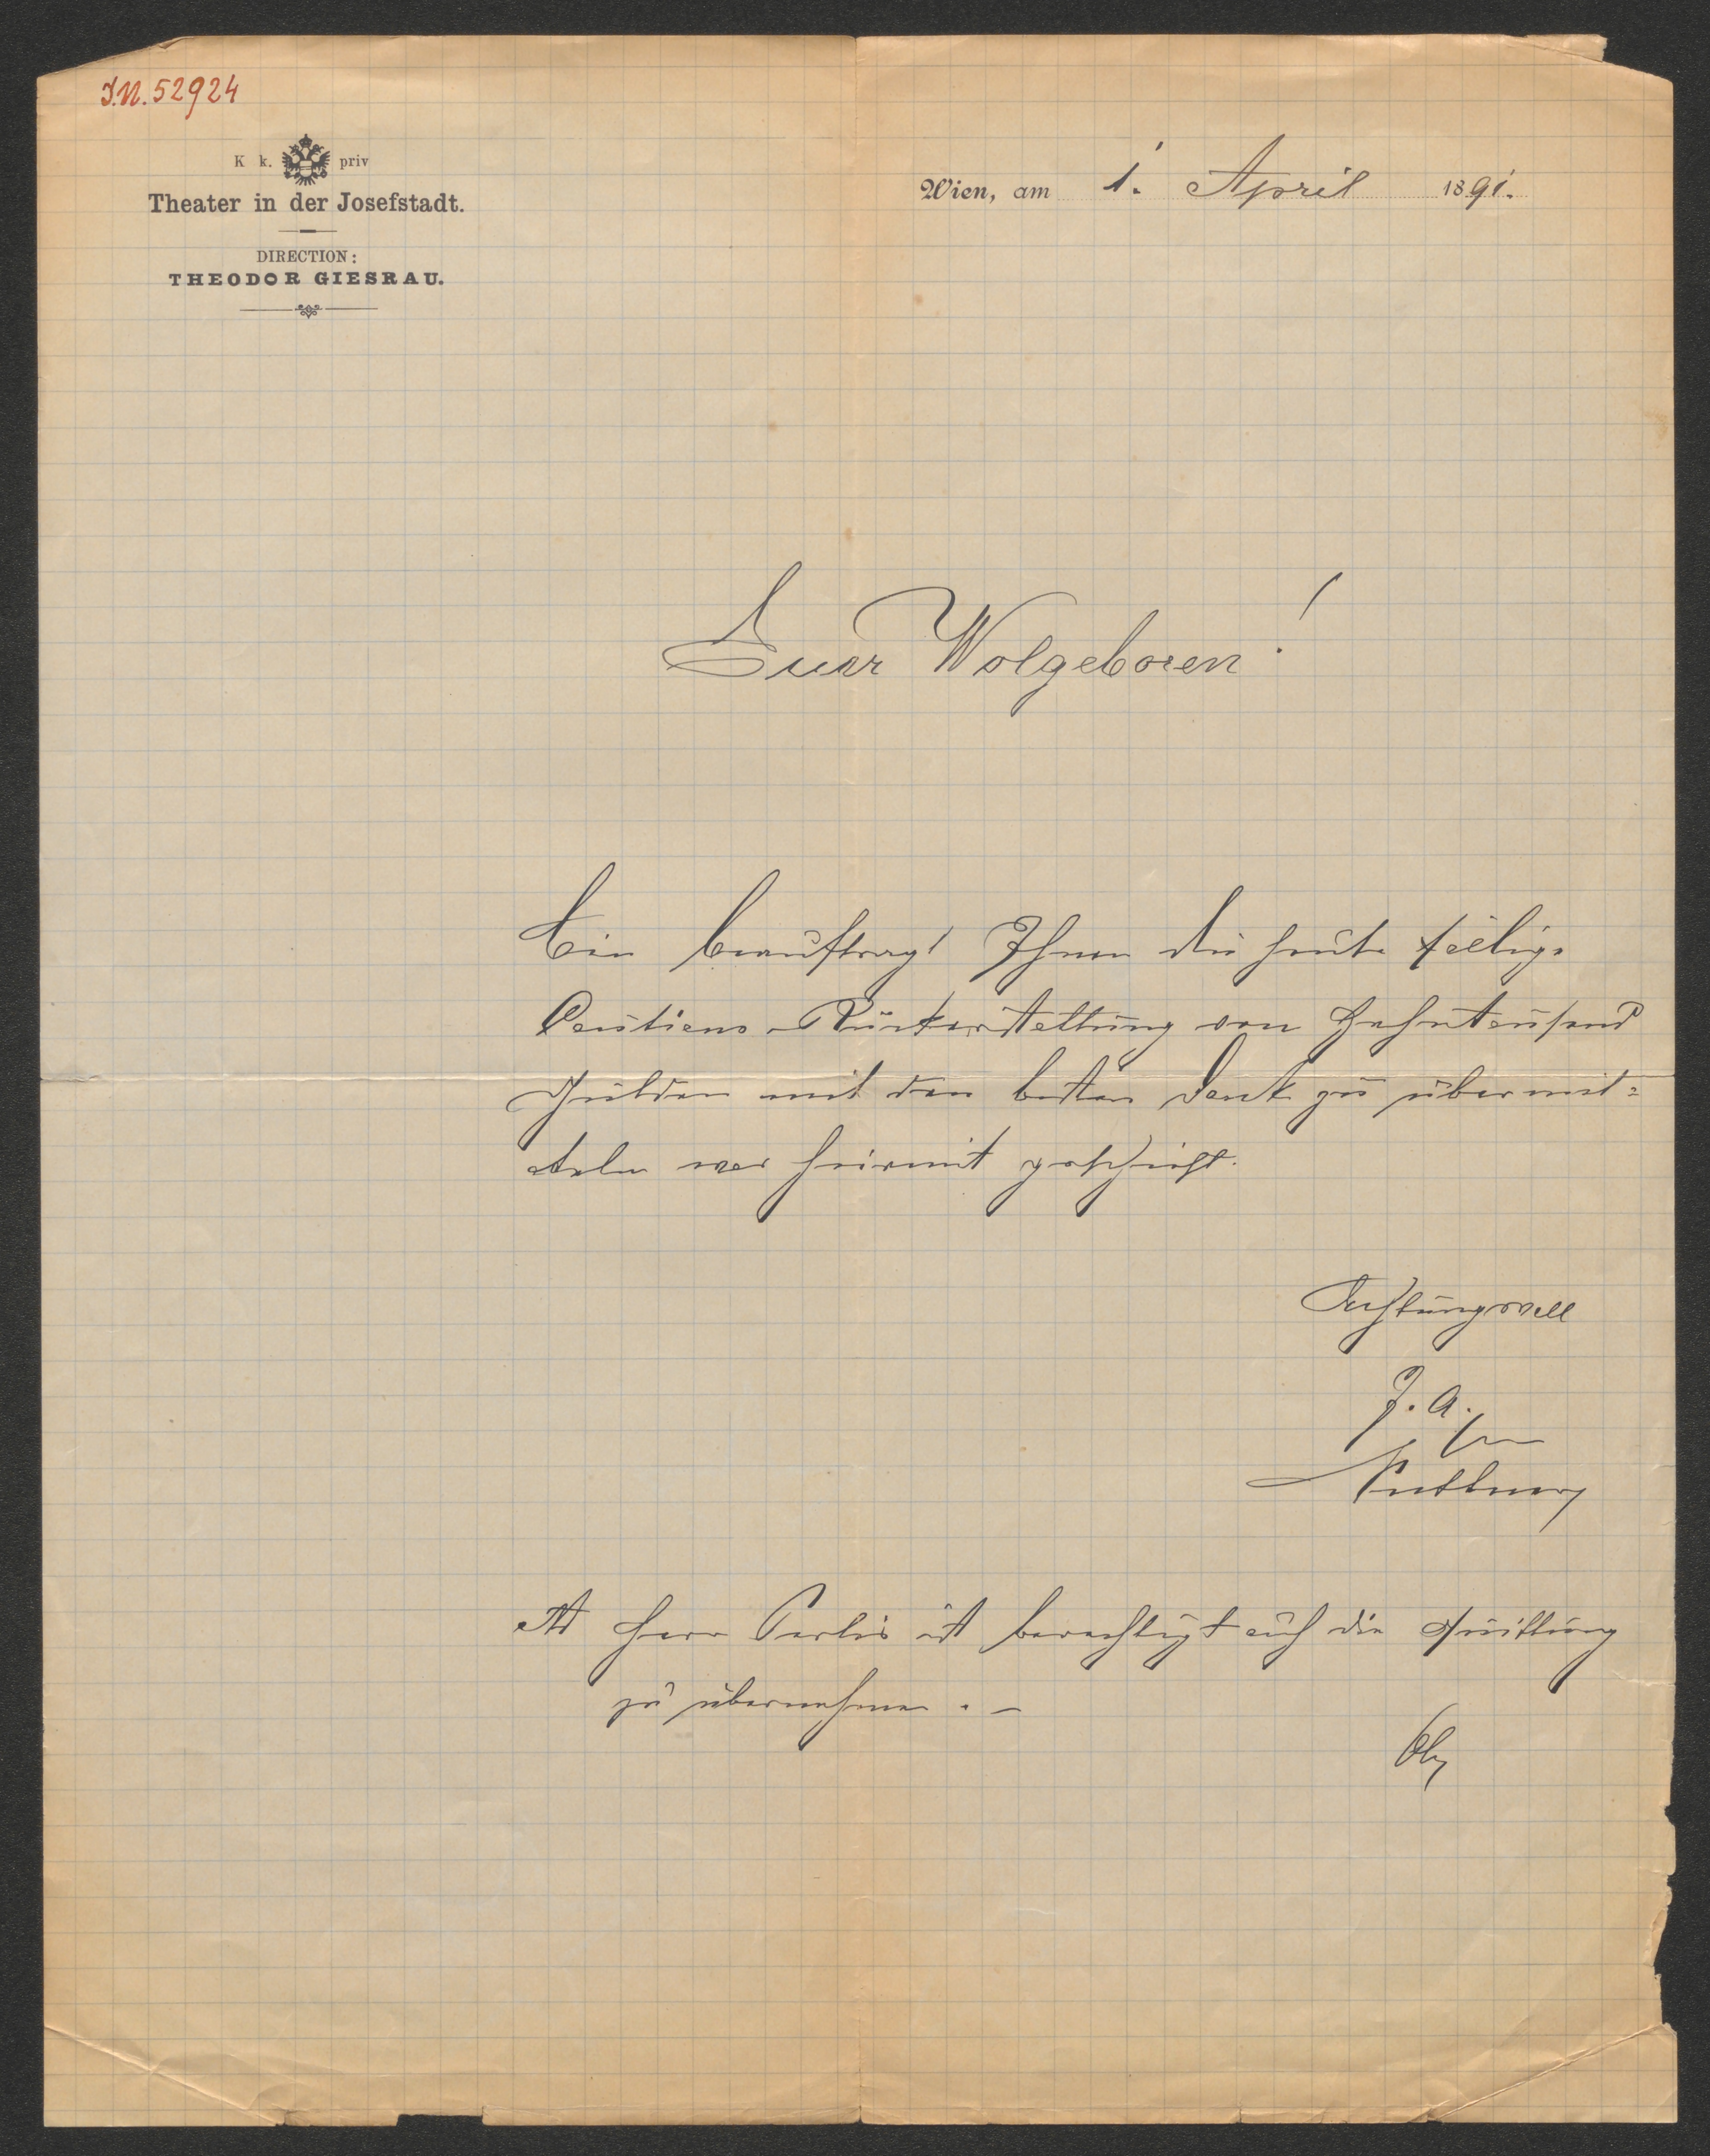 I.N. 52924
K k. priv
Theater in der Josefstadt.
DIRECTION:
THEODOR GIESRAU.
Wien, am 1. April 1891.
Euer Wolgeboren!
Bin beauftragt Ihnen die heute fällige
Cautions-Rückerstattung von Zehntausend
Gulden mit dem besten Dank zu übermit=
teln was hiermit geschieht.
Achtungsvoll
I. A.
Herr Perlis ist berechtigt auch die Quittung
zu übernehmen. –